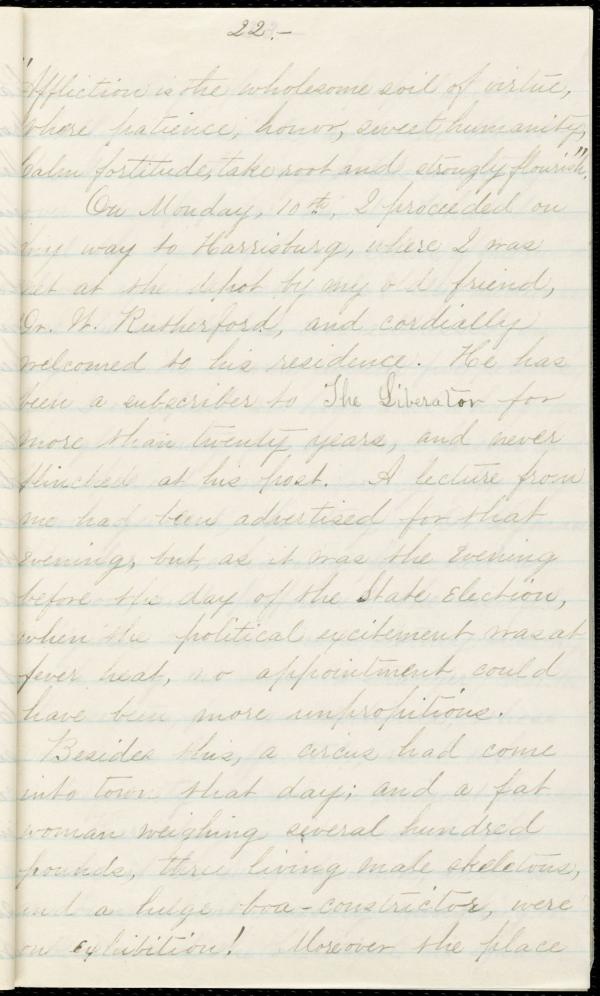 22.-
"Affliction is the wholesome soil of virtue,
Where patience, honor, sweet humanity,
Calm fortitude, take root and strongly flourish."
On Monday, 10th, I proceeded on
my way to Harrisburg, where I was
met at the depot by my old friend,
Dr. W. Rutherford, and cordially
welcomed to his residence. He has
been a subscriber to The Liberator for
more than twenty years, and never
flinched at his post. A lecture from
me had been advertised for that
evening, but, as it was the evening
before the day of the State Election,
when the political excitement was at
fever heat, no appointment could
have been more unpropitious.
Besides this, a circus had come
into town that day; and a fat
woman weighing several hundred
pounds, three living male skeletons,
and a huge boa-constrictor, were
on exhibition! Moreover the place